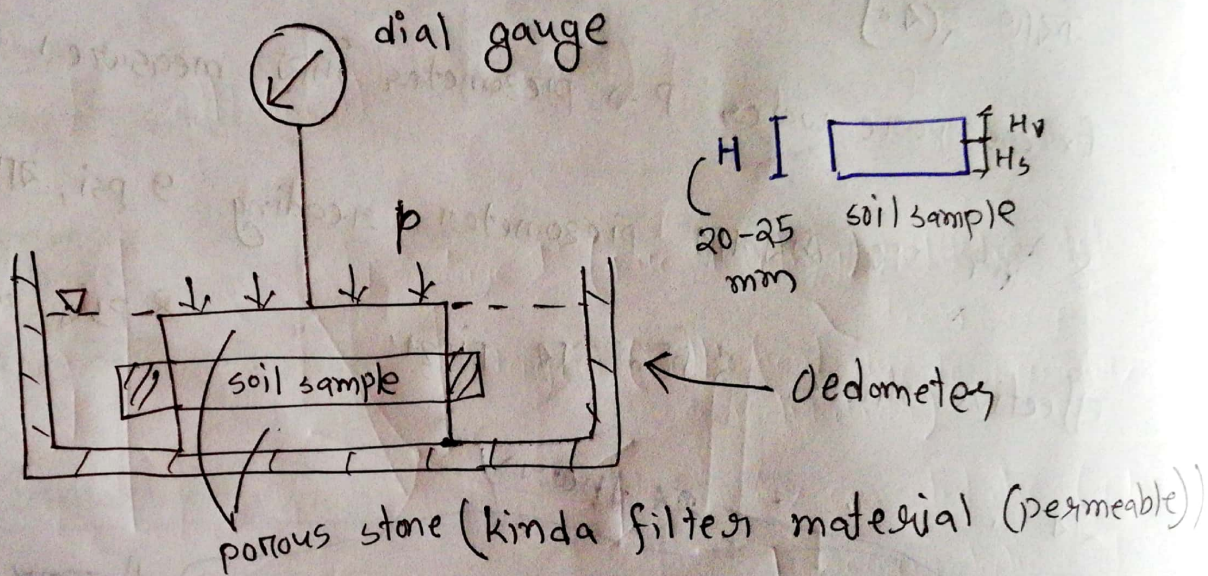 dial gauge
H
Hv
Hs
20-25
mm
soil sample
p
soil sample
Oedometer
porous stone (kinda filter material (permeable))